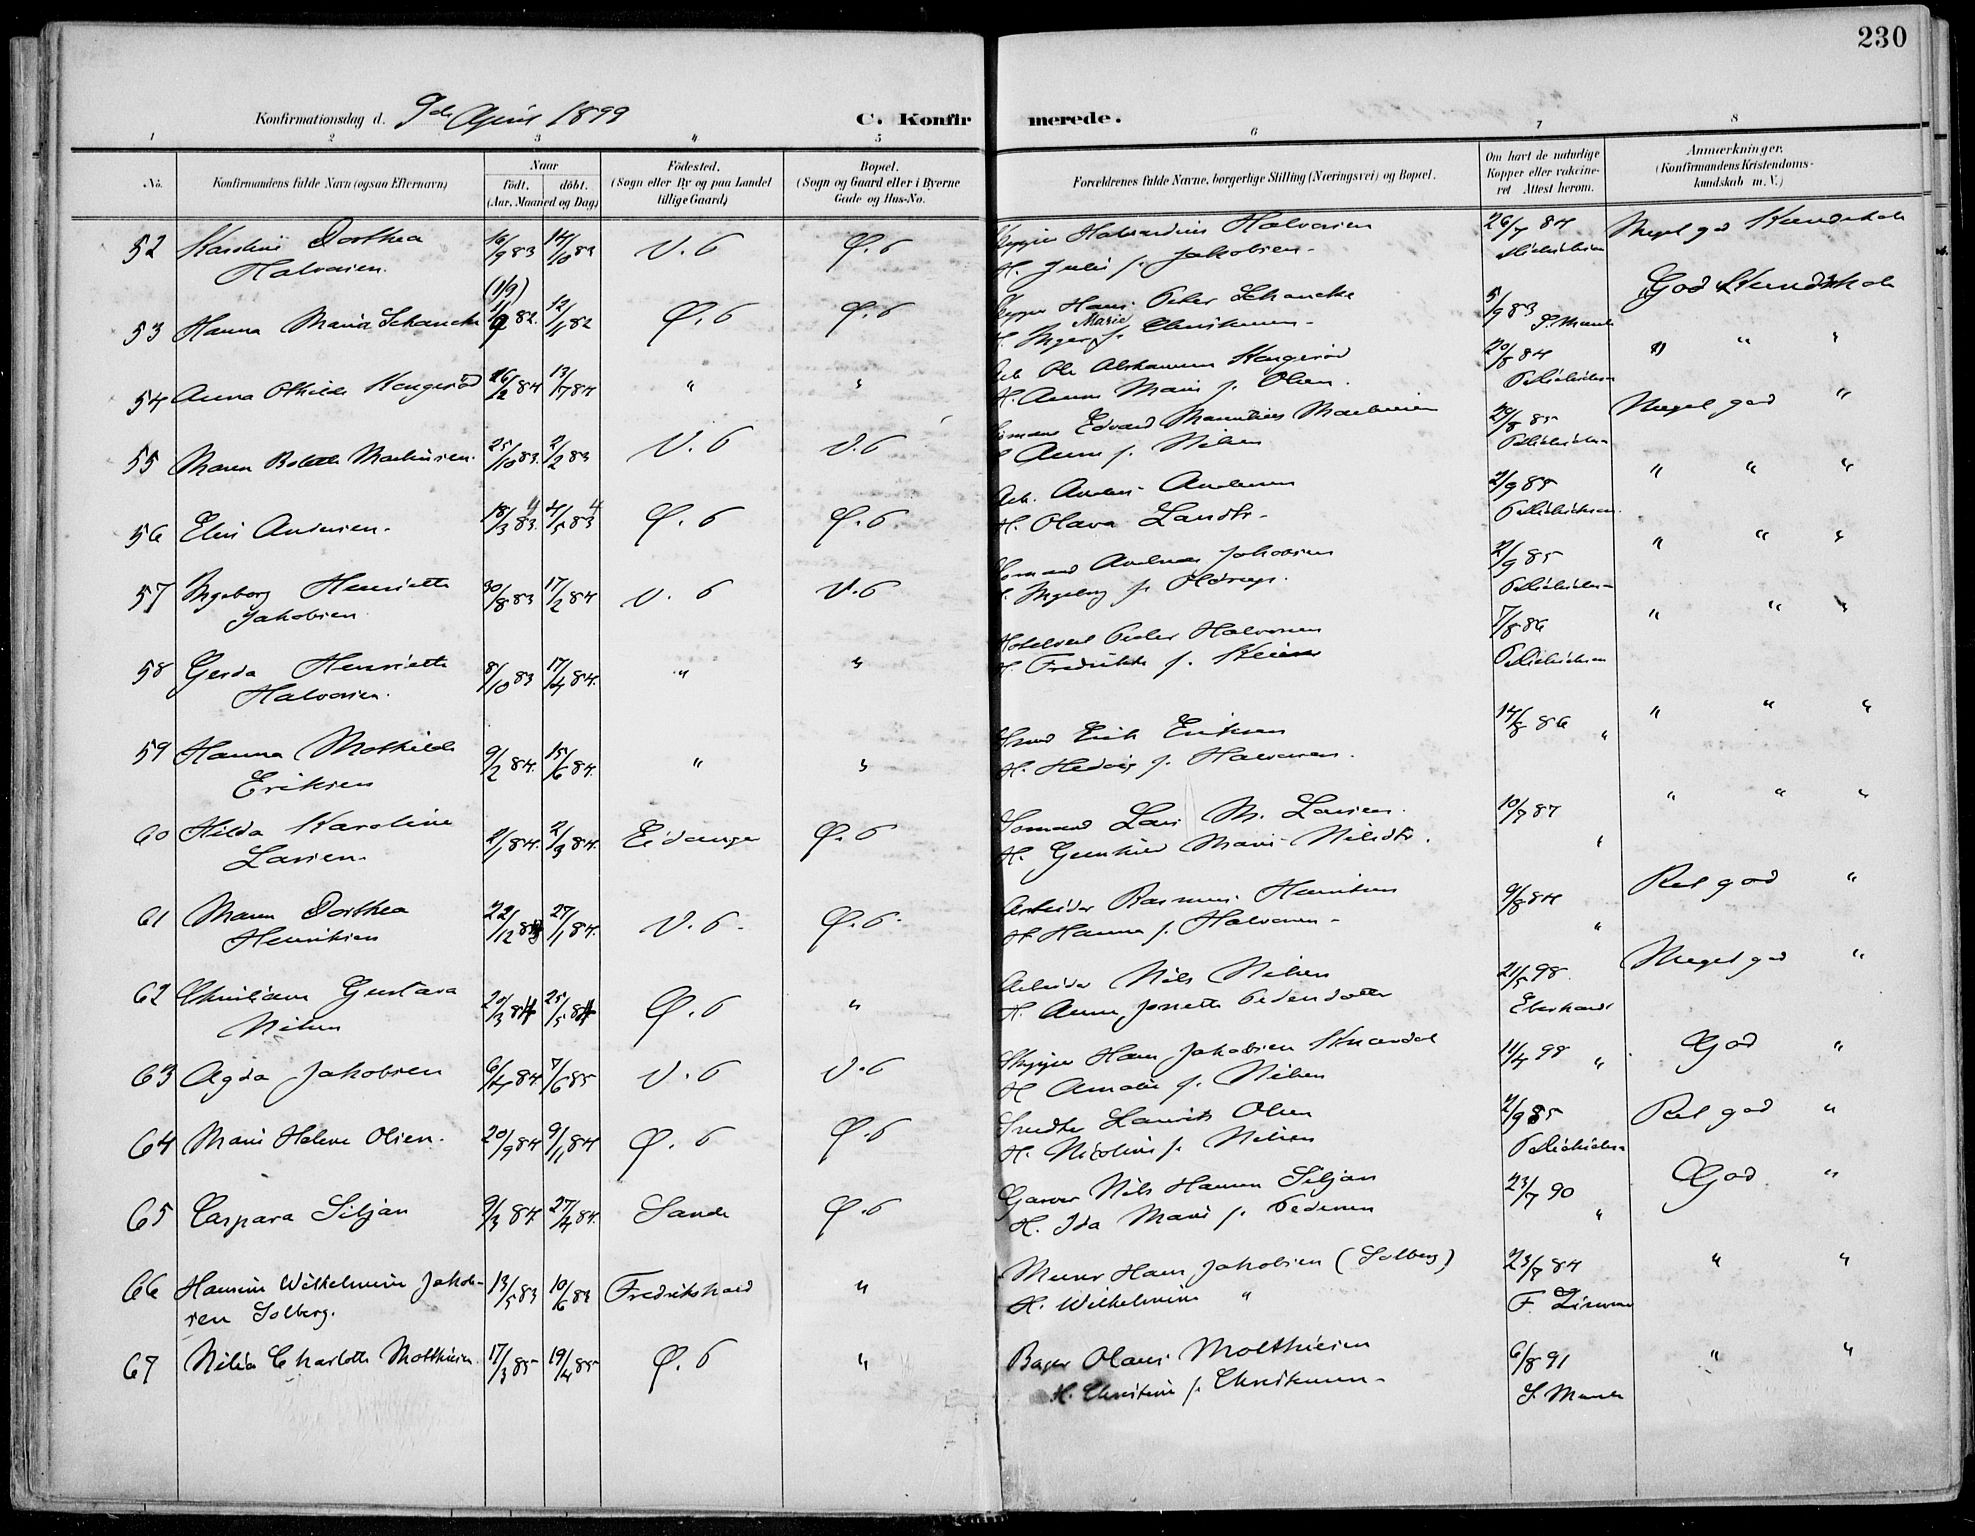 230
Konfirmationsdag d. 9de April 1899
C. Konfirmerede.
1 2 3 4 5 6 7 8
No. Konfirmandens fulde Navn (ogsaa Efternavn)
Naar
födt. döbt.
(Aar, Maaned og Dag)
Födested.
(Sogn eller By og paa Landet
tillige Gaard)
Bopæl.
(Sogn og Gaard eller i Byerne
Gade og Hus-No.
Forældrenes fulde Navne, borgerlige Stilling (Næringsvei) og Bopæl.
Om havt de naturlige
Kopper eller vakcine-
ret Attest herom.
Anmærkninger.
(Konfirmandens Kristendoms-
kundskab m. V.)
52 Karoline Dorthea 16/9 83 14/10 83 V. 6 Ø. 6 Halvorsen 26/7 84 Meget god Kundskab
Halvorsen. H. Julie f. Jakobsen -
(1/9)
53 Hanna Maria Schancke 82. 12/1 82 Ø. 6 Ø. 6 Hans Peter Schancke 5/9 83 God Kundskab
H. Inger Marie f. Christensen - S. Munch
54 Anna Othilde 16/2 84 13/7 84 " " Arb. Ole 20/8 84 " " "
H. Anna Marie f. Olsen.
55 Maren Bolette Mathisen. 25/10 83. 2/2 83 V. 6 V. 6 Sömand Edvard 29/8 85 Meget god "
Anna f. Nilsen
56 Elise Andersen. 18/3 83. 4 83 4 Ø. 6 Ø. 6 Arb. Anders Andersen 2/9 85 " " "
H. Olava Larsdtr -
57 Ingeborg Henriette 30/8 83 17/2 84 V. 6 V. 6 Sömand Andreas Jakobsen 2/9 85 " " "
Jakobsen Ingeborg f.
58 Gerda Henriette 8/10 83 17/4 84. " " Peder Halvorsen 7/8 86 " " "
Halvorsen. H. Fredrikke f.
59 Hanna Mathilde 9/2 84. 15/6 84. " " Smed Erik Eriksen 14/8 86 " " " "
Eriksen H. Hedvig f. Halvorsen.
60 Hilda Karoline 2/1 84. 2/3 84. Eidanger Ø. 6 Sömand Lars M. Larsen. 10/7 87 " " "
Larsen. H. Gunhild Marie Nilsdtr. "
61 Maren Dorthea 22/12 83 27/1 84. V. 6 - Ø. 6 - Arbeider Rasmus Henriksen 9/8 84 Ret god "
Henriksen H. Hanna f. Halvorsen - "
62 Christiane Gustava 20/3 84 25/5 84 Ø. 6 " Arbeider Nils Nilsen 21/5 98 Meget god "
Nilsen H. Anne Jonette Pedersdatter Eberhardt
63 Agda Jakobsen 6/4 84 7/6 85 V. 6 V. 6 Skipper Hans Jakobsen 11/4 98 " God "
H. Amalie f. Nilsen
64 Marie Helene Olsen. 20/9 84 9/11 84 Ø. 6 Ø. 6 Laurits Olsen 2/9 85 Ret god "
H. Nicoline f. Nilsen
65 Caspara Siljan 9/3 84. 27/4 84. Sande Ø. 6 Garver Nils Hansen Siljan 23/7 90 God "
H. Ida Marie f. Pedersen "
66 Hansine Wilhelmine Jakob- 13/5 83 10/6 83 Fredrikshald " Murer Hans Jakobsen (Solberg) 23/7 84 " "
sen Solberg. H. Wilhelmine " F.
67 Nilia Charlotte Molthisen. 17/3 85 19/4 85 Ø. 6 " Bager Olaus Molthisen 6/8 91 " "
H. Christine f. Christensen - S. Munch